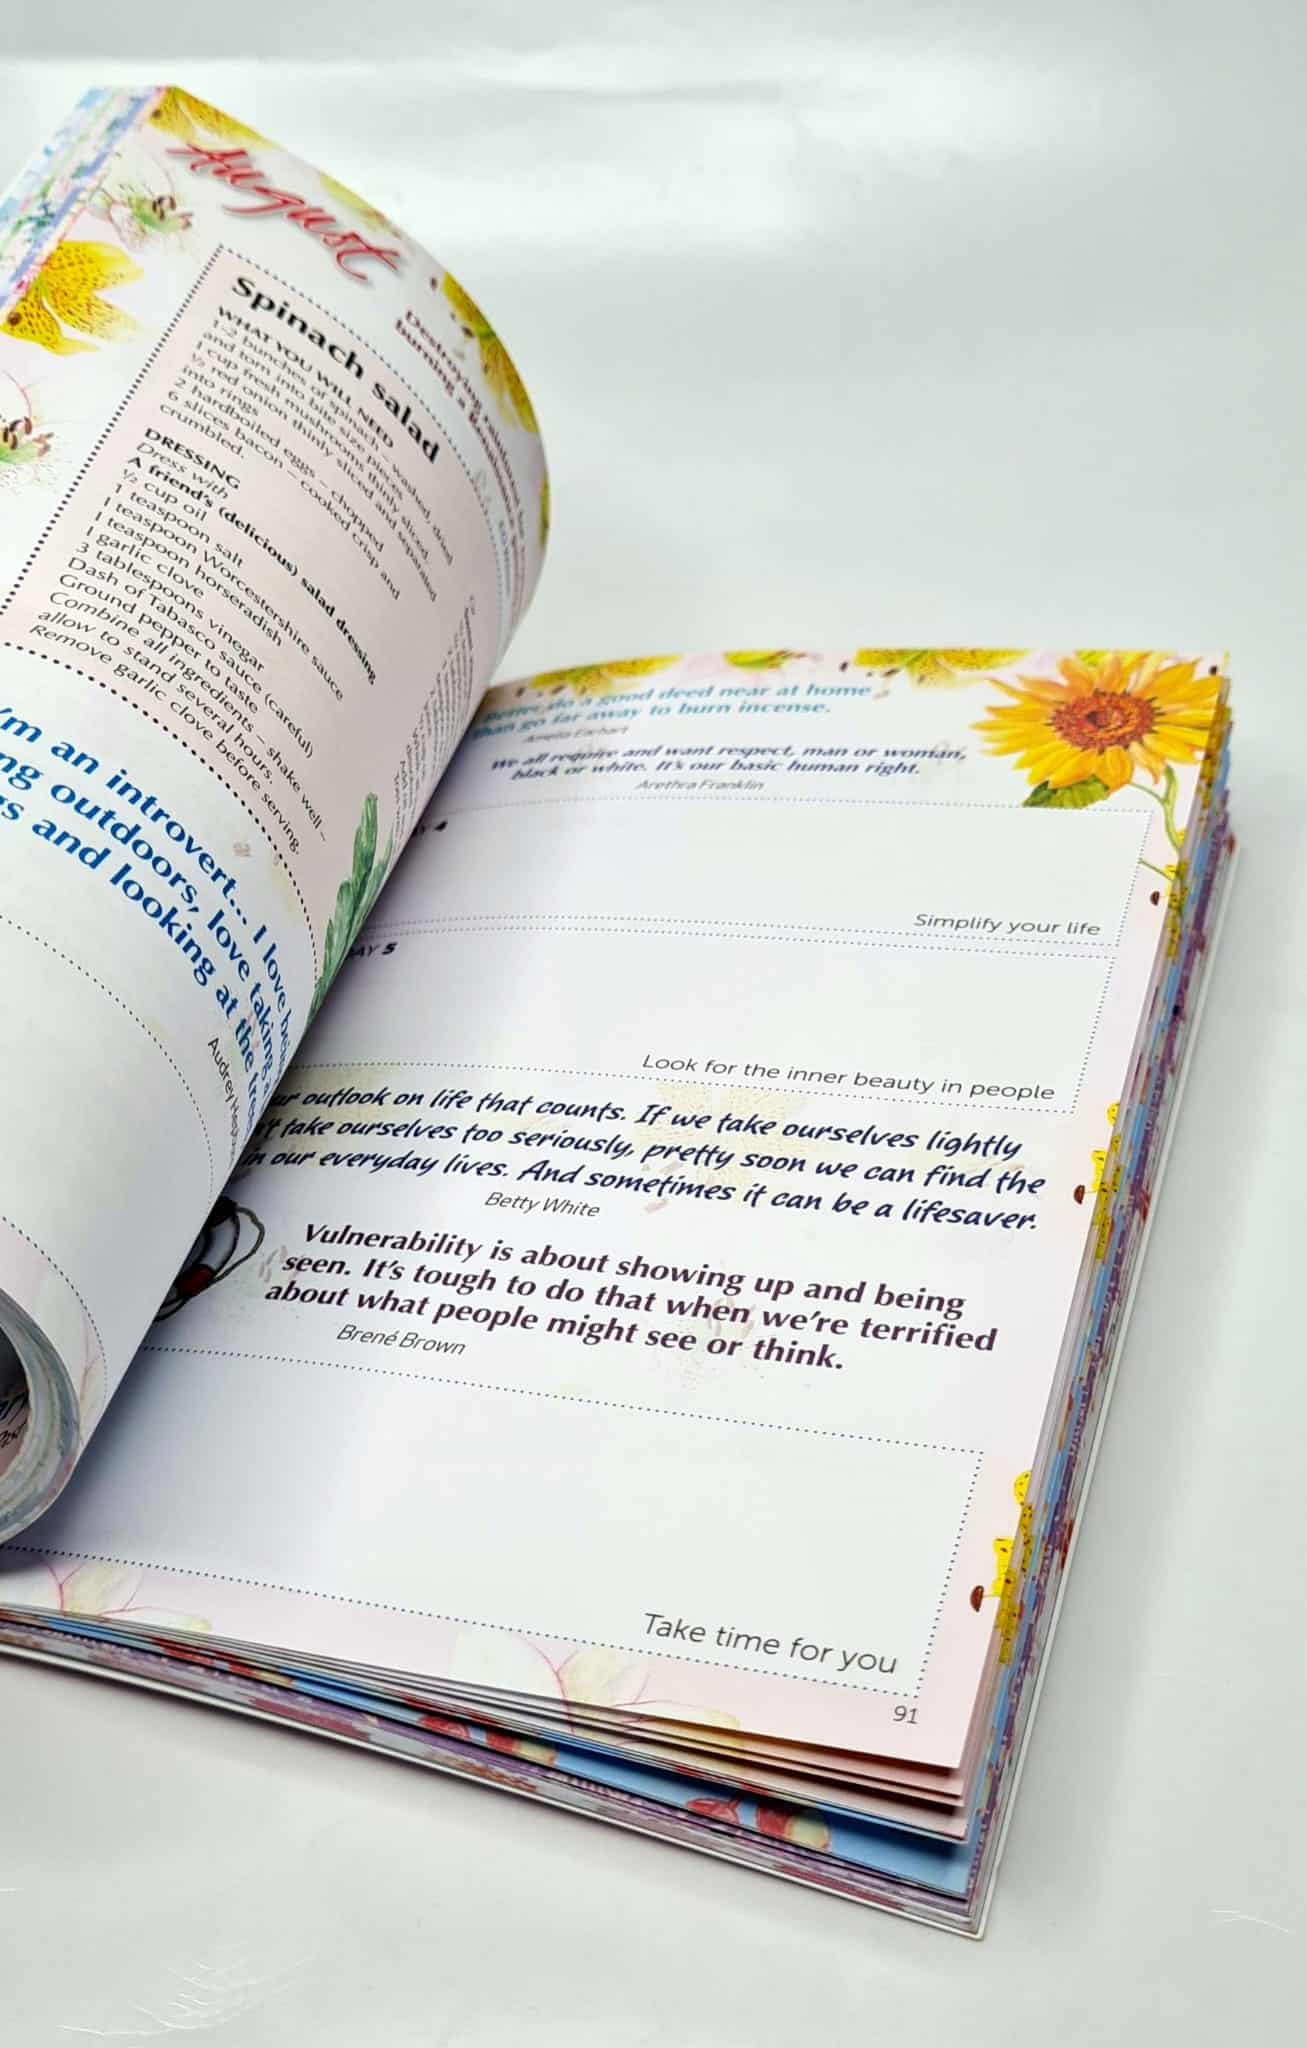 August
Spinach salad
WHAT YOU WILL NEED
1-2 bunches of spinach – washed, dried
and torn into bite size pieces
1 cup fresh mushrooms thinly sliced.
½ red onion thinly sliced and separated
into rings
2 hardboiled eggs – chopped
6 slices bacon – cooked crisp and
crumbled.
DRESSING
Dress with
A friend's (delicious) salad dressing
½ cup oil
1 teaspoon salt
1 teaspoon Worcestershire sauce
1 teaspoon horseradish
1 garlic clove
3 tablespoons vinegar
Dash of Tabasco sauce (careful)
Ground pepper to taste
Combine all ingredients – shake well –
allow to stand several hours.
Remove garlic clove before serving.
'm an introvert... I love
ng outdoors, love taking
gs and looking at the
Audrey
Better do a good deed near at home
than go far away to burn incense.
Amelia Earhart
We all require and want respect, man or woman,
black or white. It's our basic human right.
Arethra Franklin
4
Simplify your life
AY 5
Look for the inner beauty in people
ur outlook on life that counts. If we take ourselves lightly
't take ourselves too seriously, pretty soon we can find the
in our everyday lives. And sometimes it can be a lifesaver.
Betty White
Vulnerability is about showing up and being
seen. It's tough to do that when we're terrified
about what people might see or think.
Brené Brown
Take time for you
91